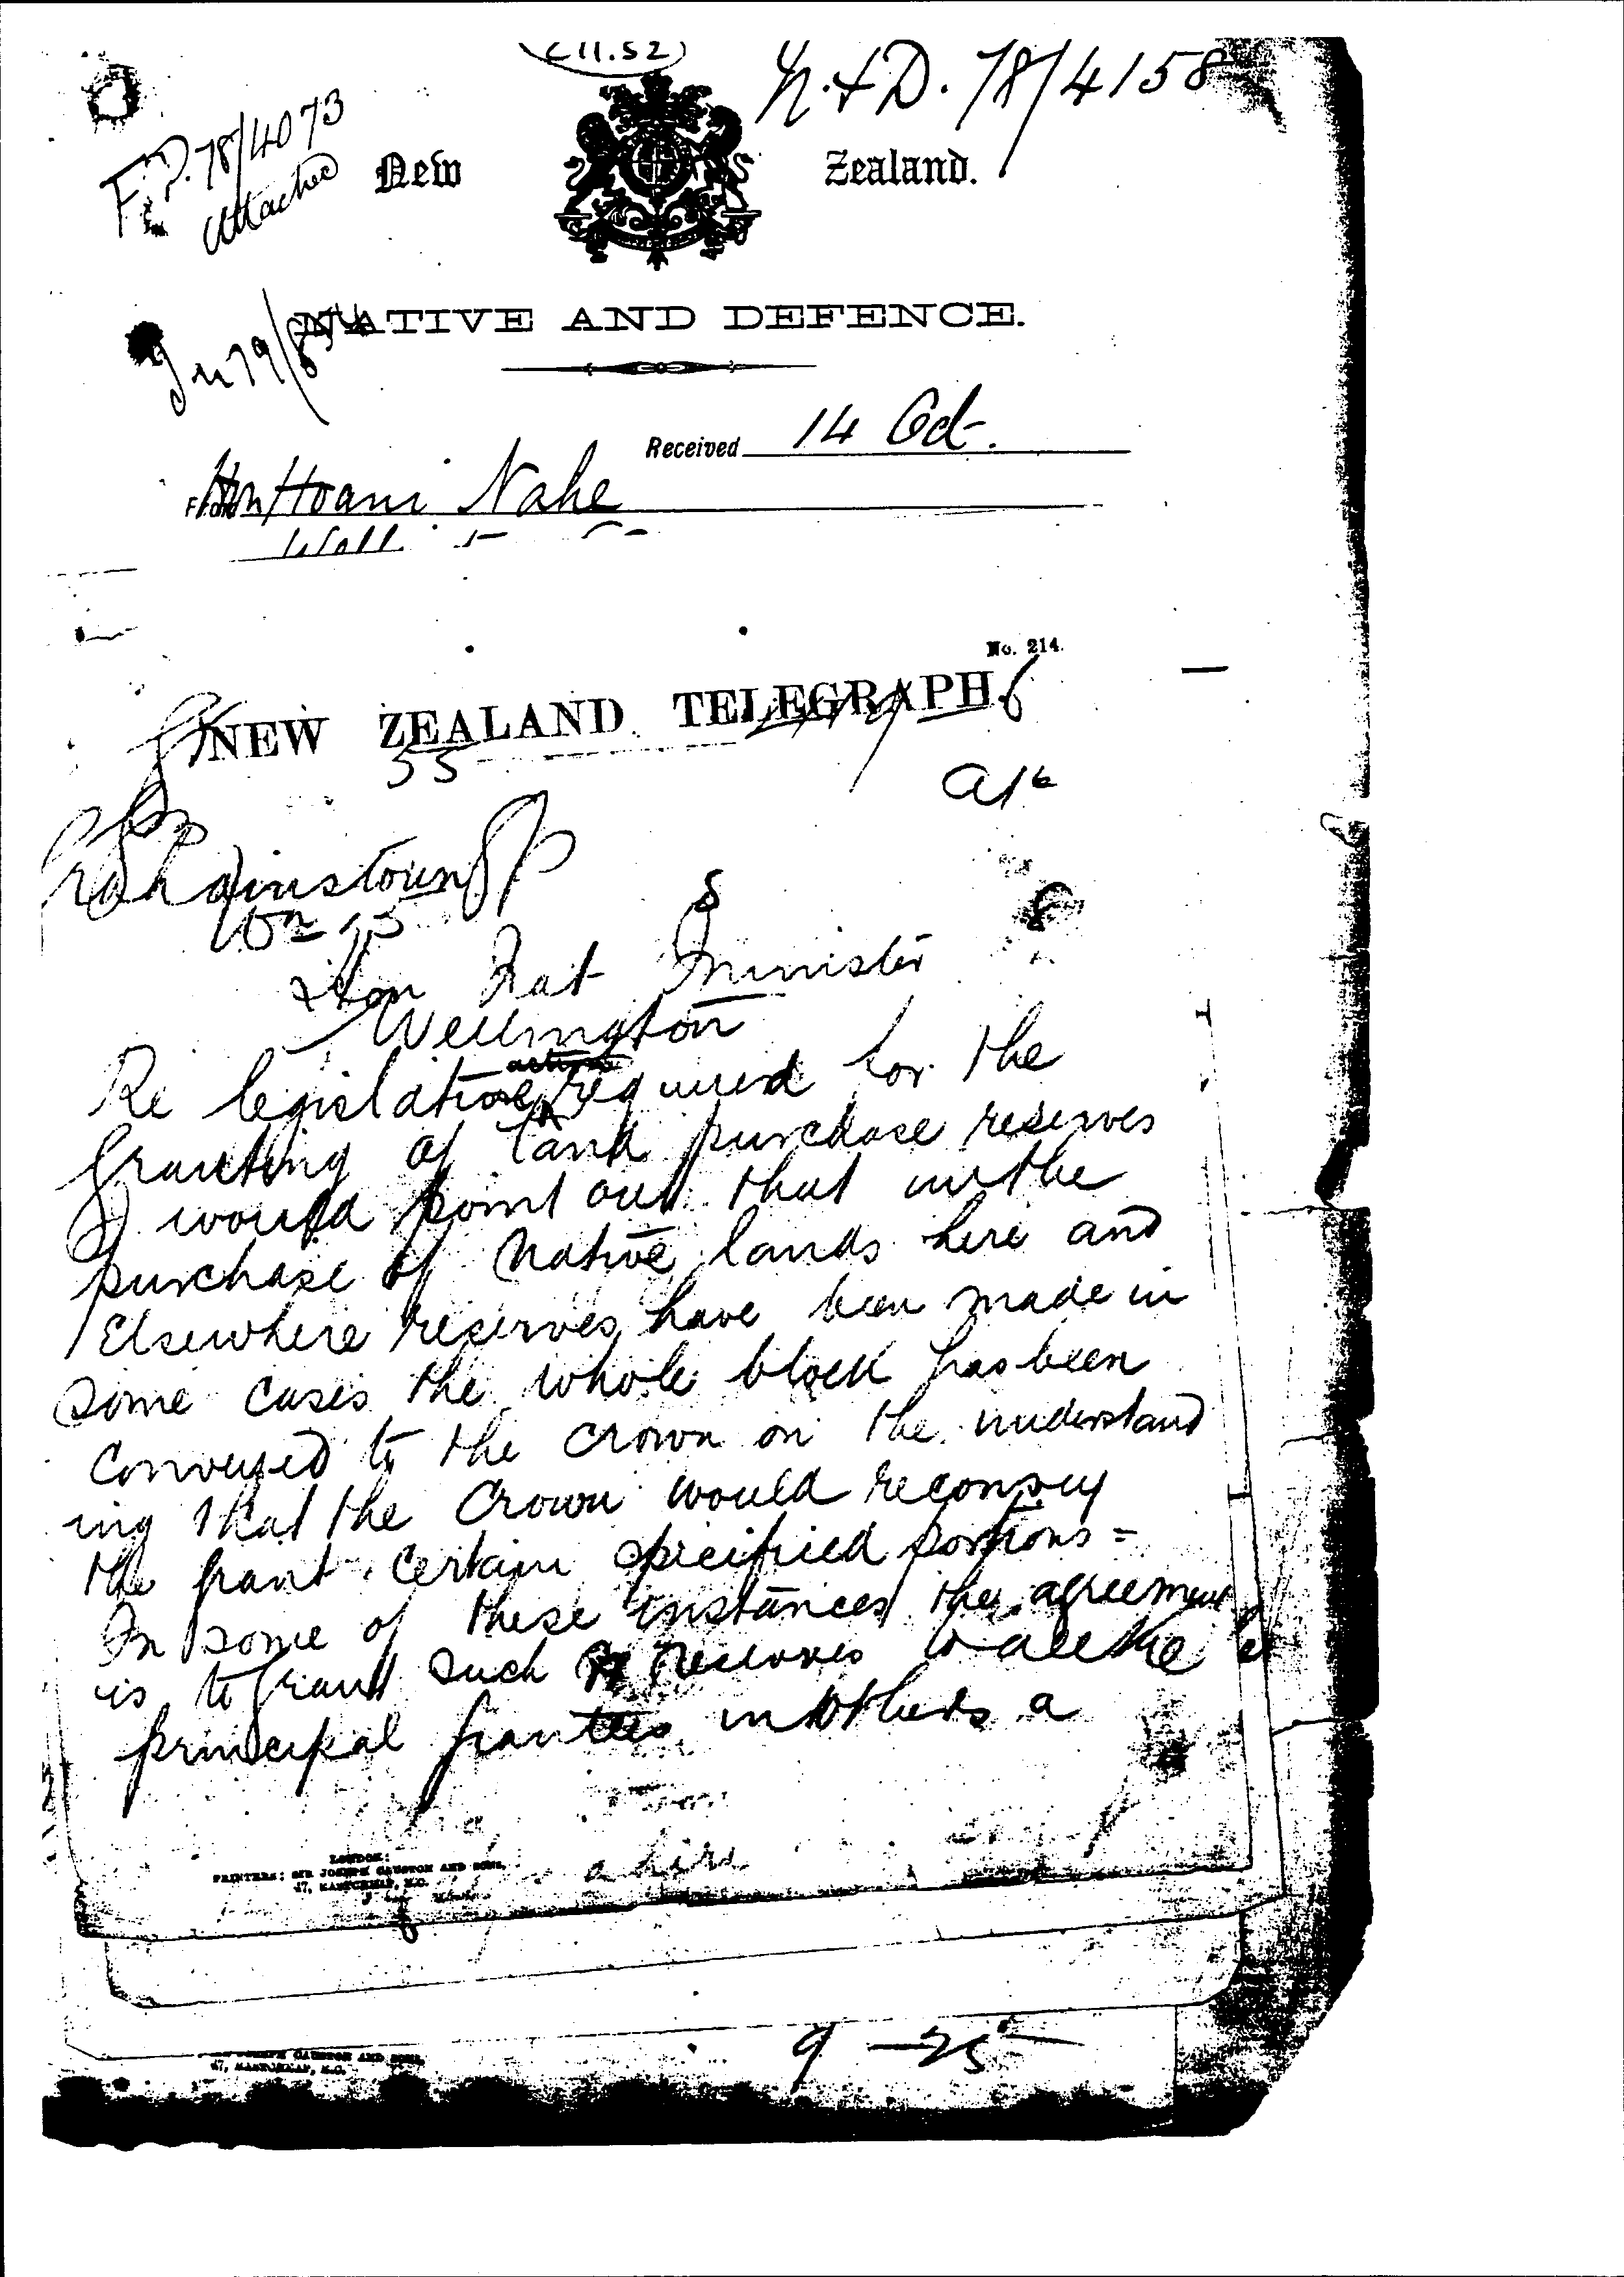 (11.52)
N.&D. 78/4158
78/4073
attached
New Zealand.
NATIVE AND DEFENCE.
Received 14 Oct.
Hon Hoani Nahe
No. 214.
NEW ZEALAND TELEGRAPH
55
Grahamstown
Hon Nat Minister
Wellington
Re legislative action required for the
Granting of land purchase reserves
I would point out that in the
purchase of Native lands here and
Elsewhere reserves have been made in
some cases the whole block has been
conveyed to the crown on the understand
ing that the Crown would reconvey
the grant certain specified portions =
In some of these instances the agreement
is to grant such reserves to all the
principal grantees in others a
LONDON:
PRINTERS: SIR JOSEPH CAUSTON AND SONS,
47, EASTCHEAP, E.C.
JOSEPH CAUSTON AND SONS,
47, EASTCHEAP, E.C.
9 - 25